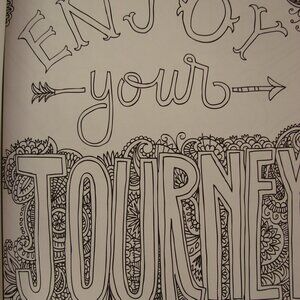 ENJOY
your
JOURNEY